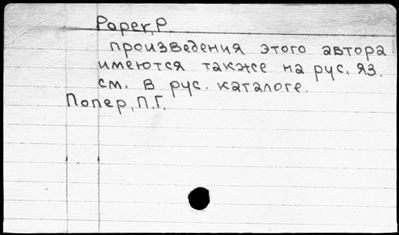 Poper, P.
произведения этого автора
имеются также на рус. яз.
см. в рус. каталоге.
Попер, П.Г.